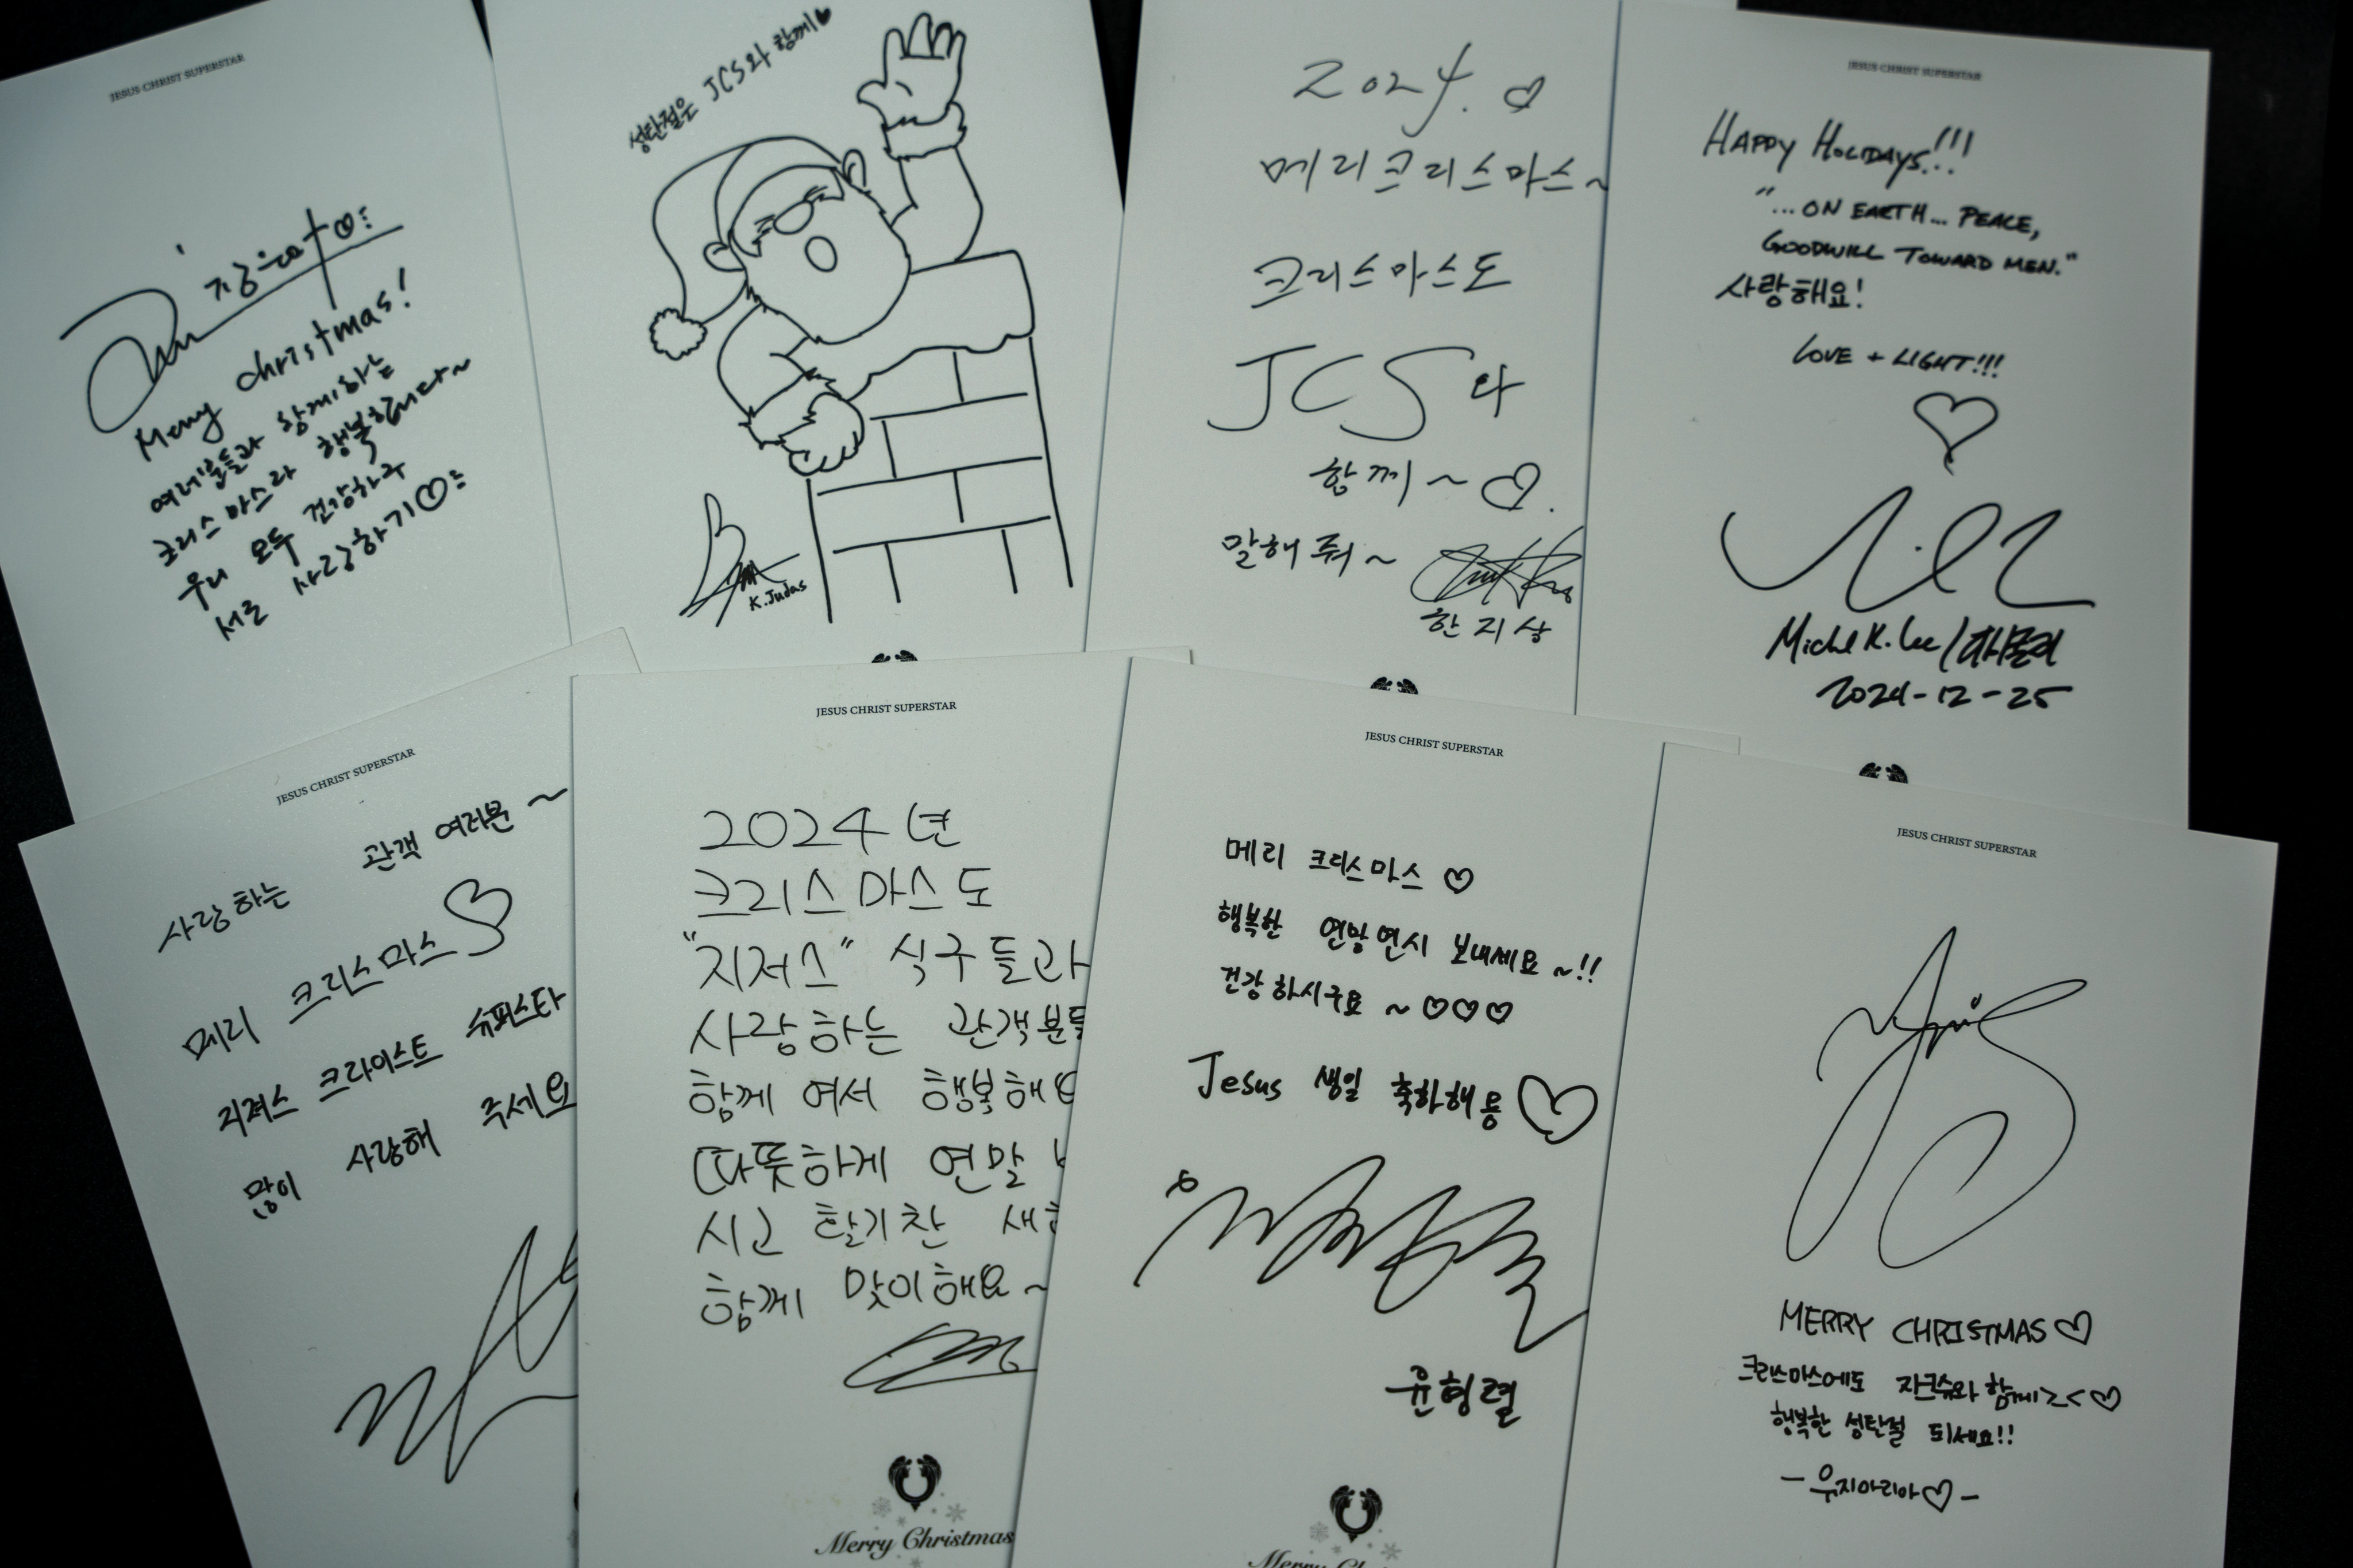 JESUS CHRIST SUPERSTAR
Merry christmas!
여러분들과 함께하는
크리스마스라 행복합니다~
우리 모두 건강하구
서로 사랑하기♡
성탄절은 JCS와 함께♥
K. Judas
2024. ♡
메리크리스마스~
크리스마스도
JCS와
함께~♡.
말해줘~
한지상
JESUS CHRIST SUPERSTAR
HAPPY HOLIDAYS!!!
"...ON EARTH... PEACE,
GOODWILL TOWARD MEN."
사랑해요!
LOVE + LIGHT!!!
Michael K. Lee/마이클리
2024-12-25
JESUS CHRIST SUPERSTAR
사랑하는 관객 여러분~
메리 크리스마스♡
지져스 크라이스트 슈퍼스타
많이 사랑해 주세요
JESUS CHRIST SUPERSTAR
2024년
크리스마스도
"지저스" 식구들과
사랑하는 관객분들
함께 여서 행복해요
따뜻하게 연말
시고 활기찬 새
함께 맞이해요~
Merry Christmas
JESUS CHRIST SUPERSTAR
메리 크리스마스♡
행복한 연말연시 보내세요~!!
건강하시구요~♡♡♡
Jesus 생일 축하해용♡
윤형렬
Merry Ch
JESUS CHRIST SUPERSTAR
MERRY CHRISTMAS♡
크리스마스에도 지크슈와 함께><♡
행복한 성탄절 되세요!!
-우지아리아♡-